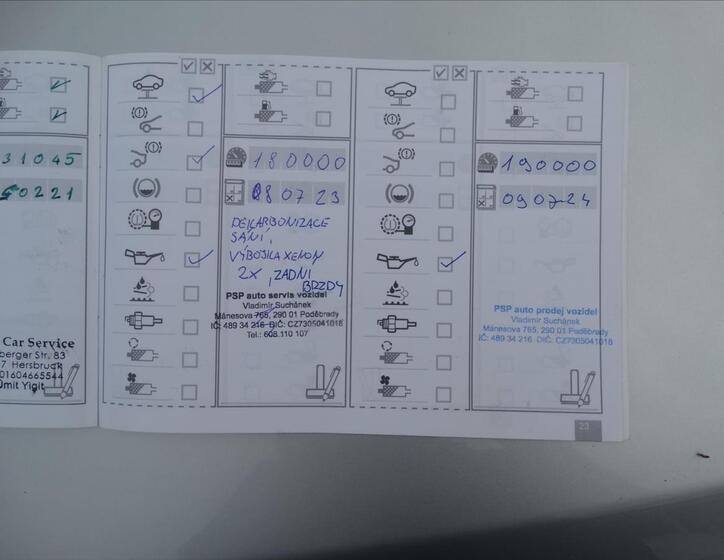 31045
180000
190000
0221
08 07 23
09 07 24
DEKARBONIZACE
SÁNÍ,
VÝBOJKA XENON
2X, ZADNÍ
BRZDY
PSP auto servis vozidel
Vladimír Suchánek
Mánesova 765, 290 01 Poděbrady
IČ: 489 34 216 DIČ: CZ7305041018
Tel.: 608 110 107
PSP auto prodej vozidel
Vladimír Suchánek
Mánesova 765, 290 01 Poděbrady
IČ: 489 34 216 DIČ: CZ7305041018
Car Service
berger Str. 83
7 Hersbruck
01604665544
Ümit Yigit
23